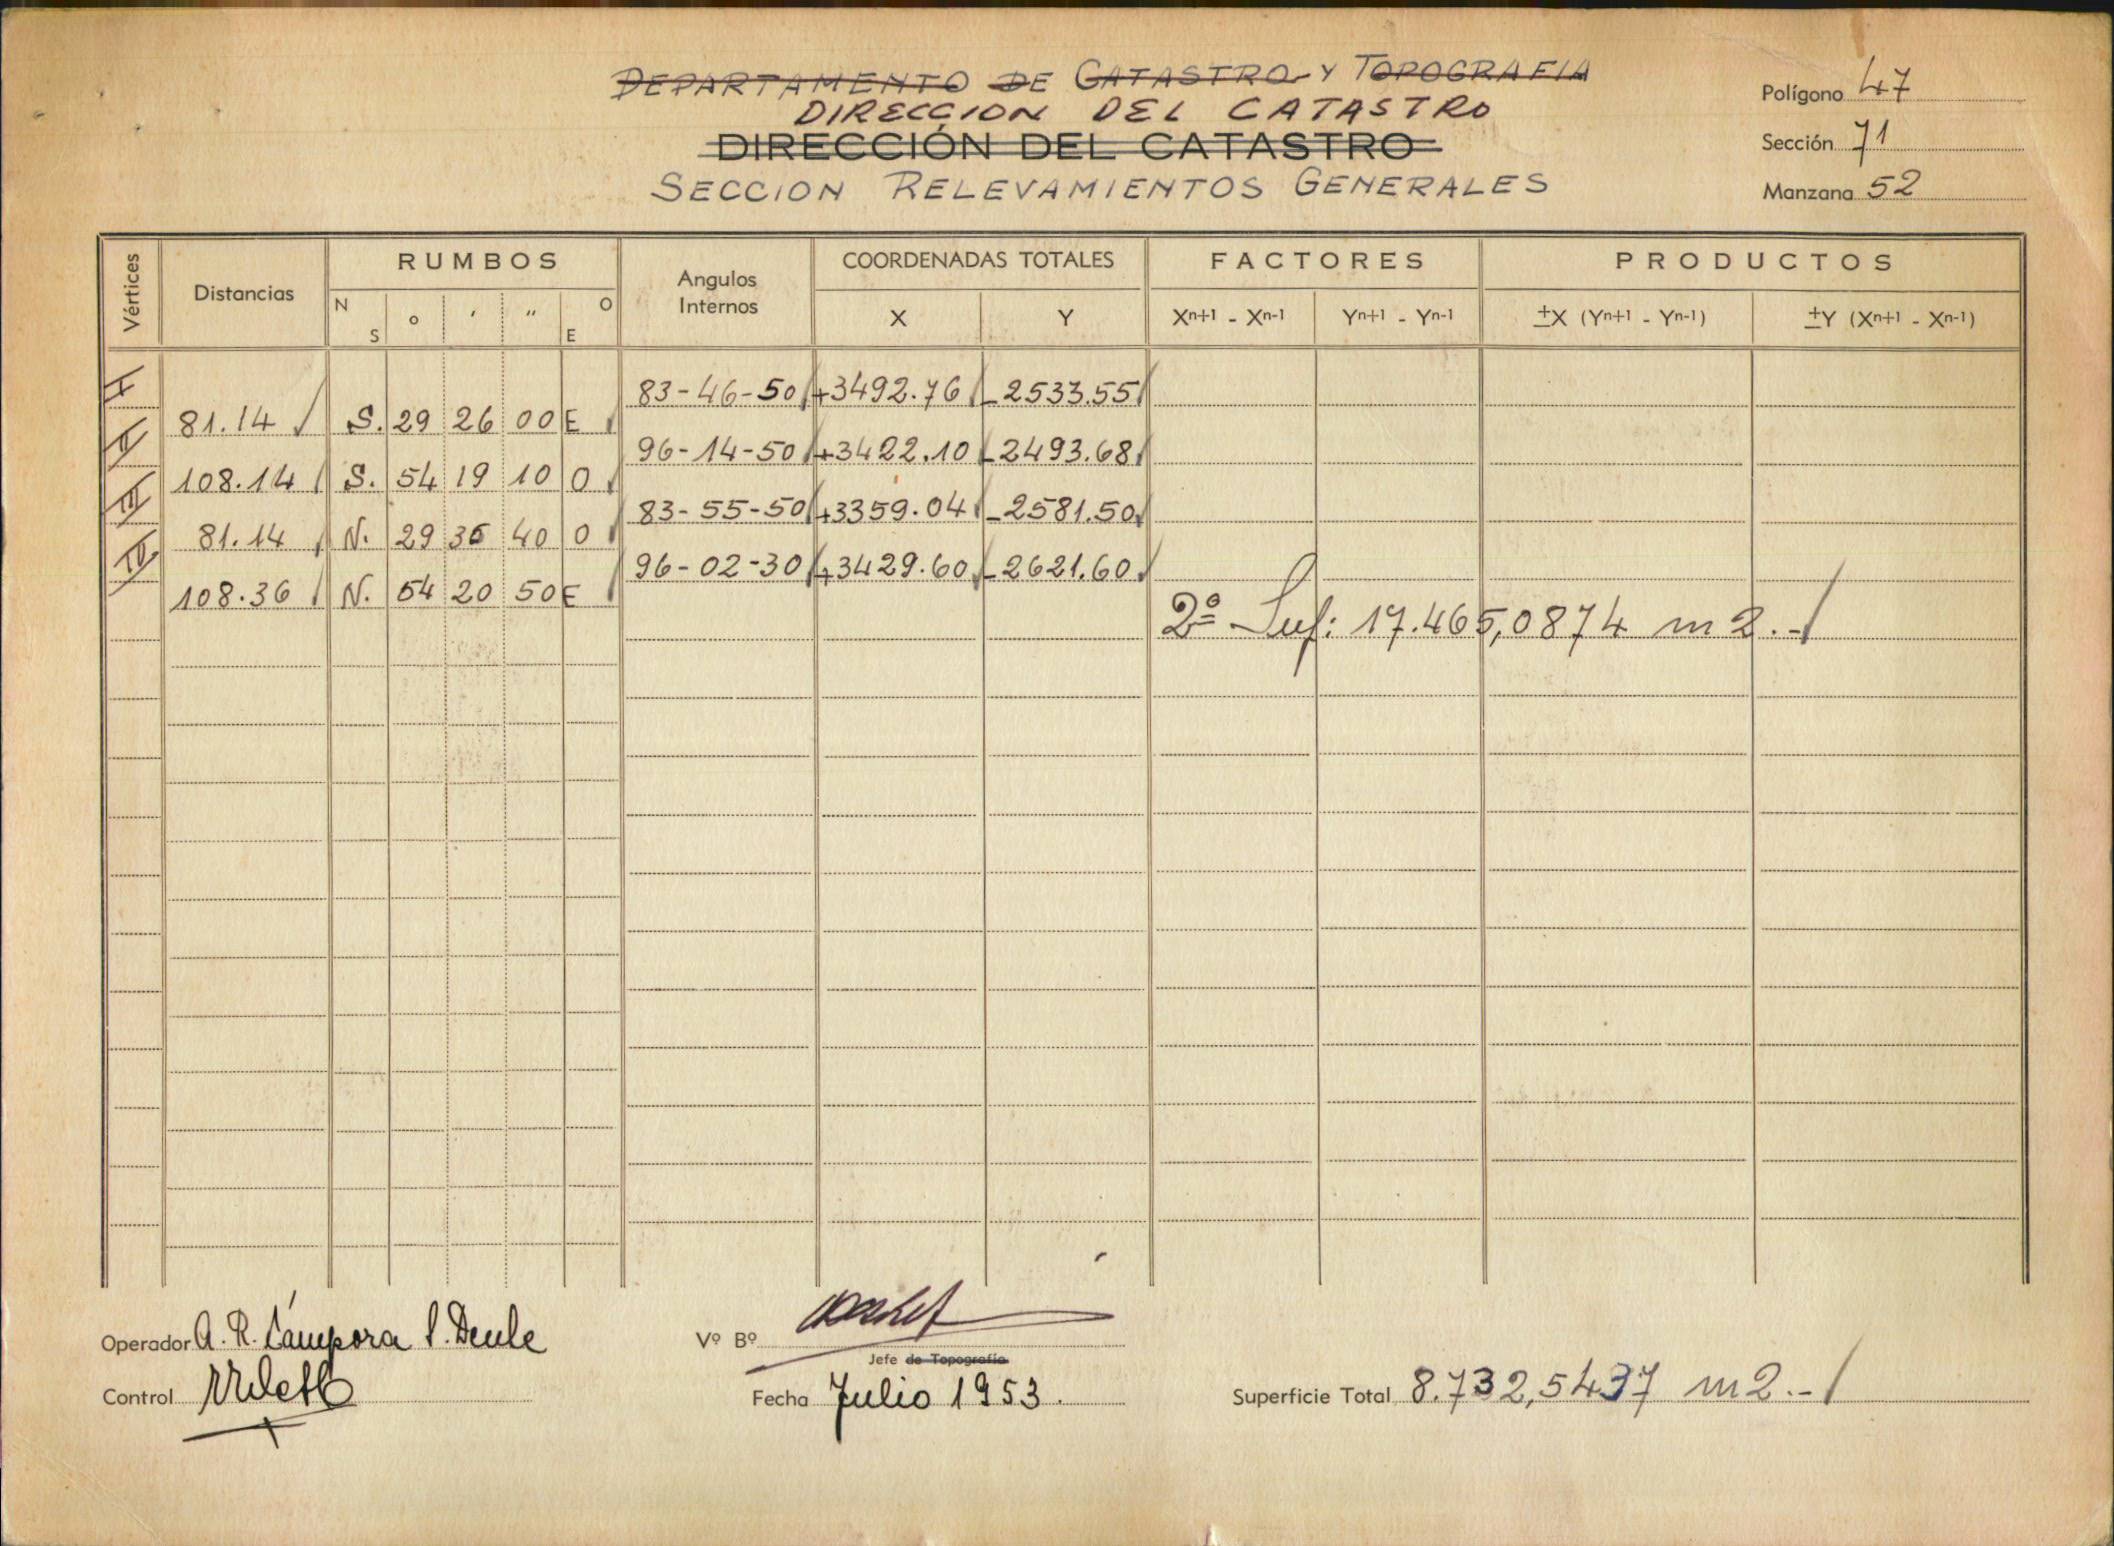 DEPARTAMENTO DE CATASTRO Y TOPOGRAFIA
DIRECCION DEL CATASTRO
DIRECCIÓN DEL CATASTRO
SECCION RELEVAMIENTOS GENERALES
Polígono 47
Sección 71
Manzana 52
Vértices Distancias RUMBOS Angulos Internos COORDENADAS TOTALES FACTORES PRODUCTOS
N S o ' " O E X Y Xn+1 - Xn-1 Yn+1 - Yn-1 ±X (Yn+1 - Yn-1) ±Y (Xn+1 - Xn-1)
I 83-46-50 +3492.76 -2533.55
81.14 S. 29 26 00 E
II 96-14-50 +3422.10 -2493.68
108.14 S. 54 19 10 O
III 83-55-50 +3359.04 -2581.50
81.14 N. 29 36 40 O
IV 96-02-30 +3429.60 -2621.60
108.36 N. 54 20 50 E
2ª Sup: 17.465,0874 m2.-
Operador A. R. Cámpora
Vº Bº
Jefe de Topografía
Control
Fecha Julio 1953.
Superficie Total 8.732,5437 m2.-